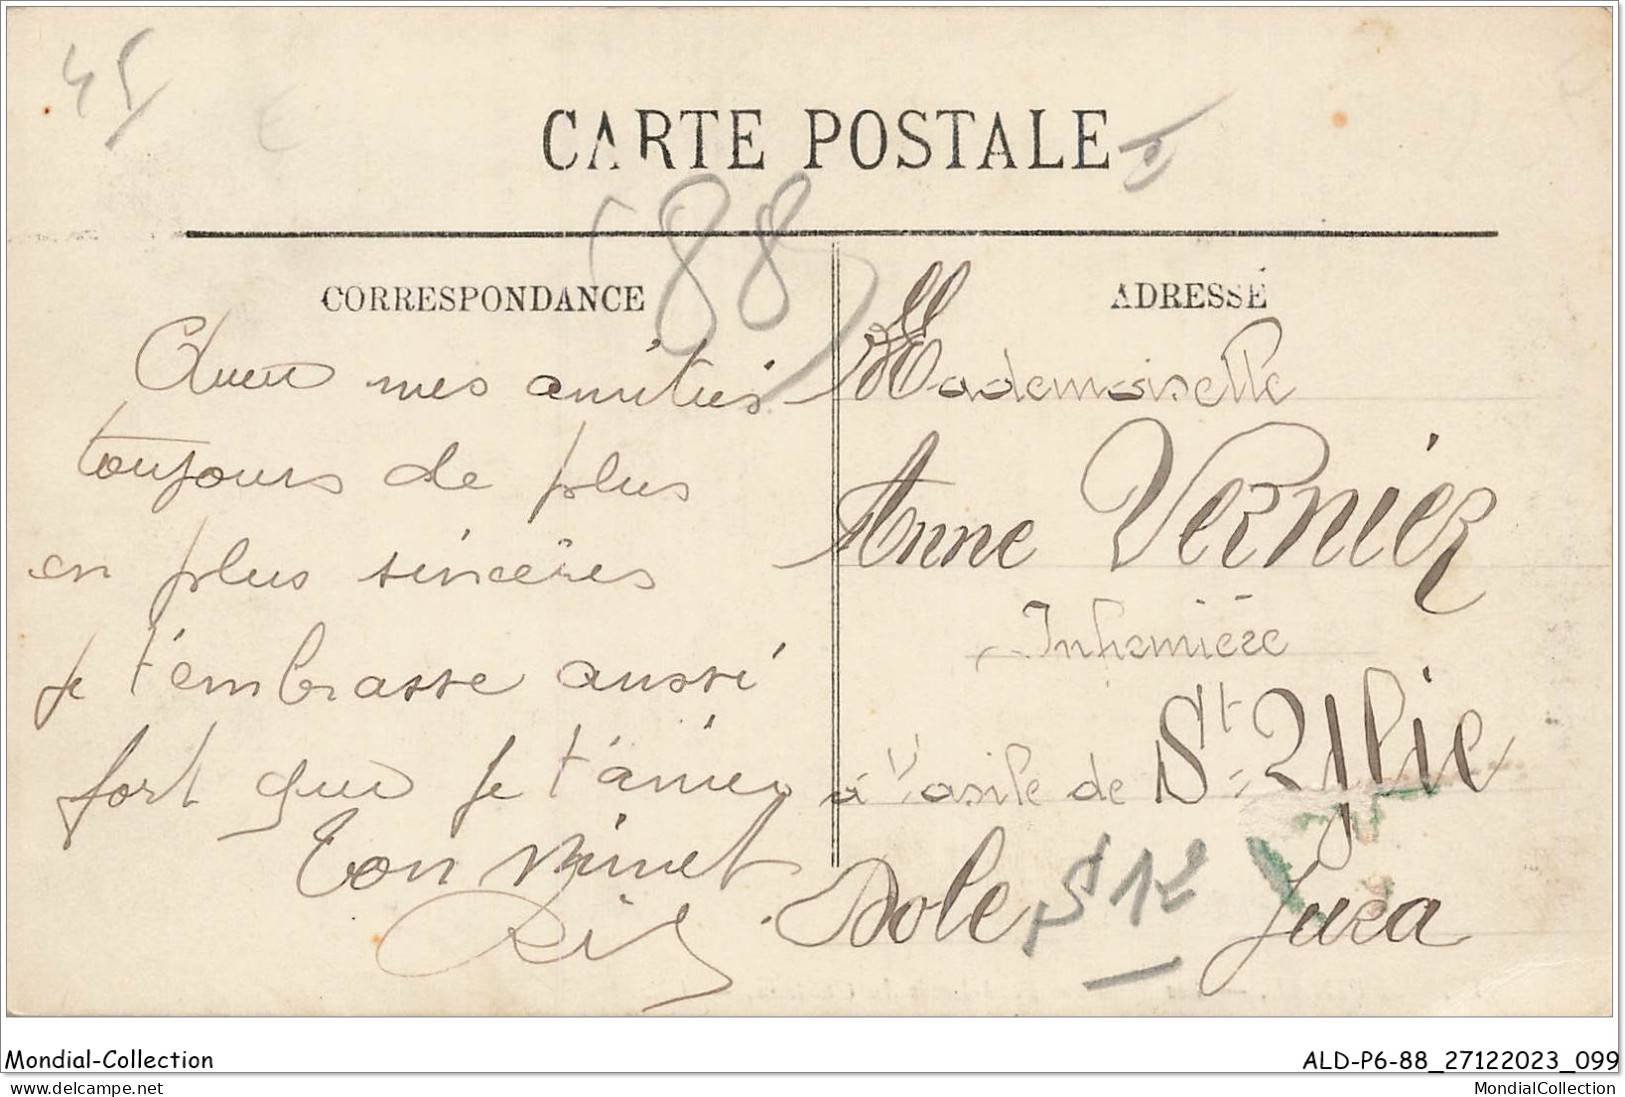 45
CARTE POSTALE
88
CORRESPONDANCE
ADRESSE
Avec mes amitiés
toujours de plus
en plus sincères
je t'embrasse aussi
fort que je t'aime
Ton Minet
Mademoiselle
Anne Vernier
Infirmière
à l'asile de St-Ylie
Dole
Jura
Mondial-Collection
ALD-P6-88_27122023_099
delcampe.net
MondialCollection